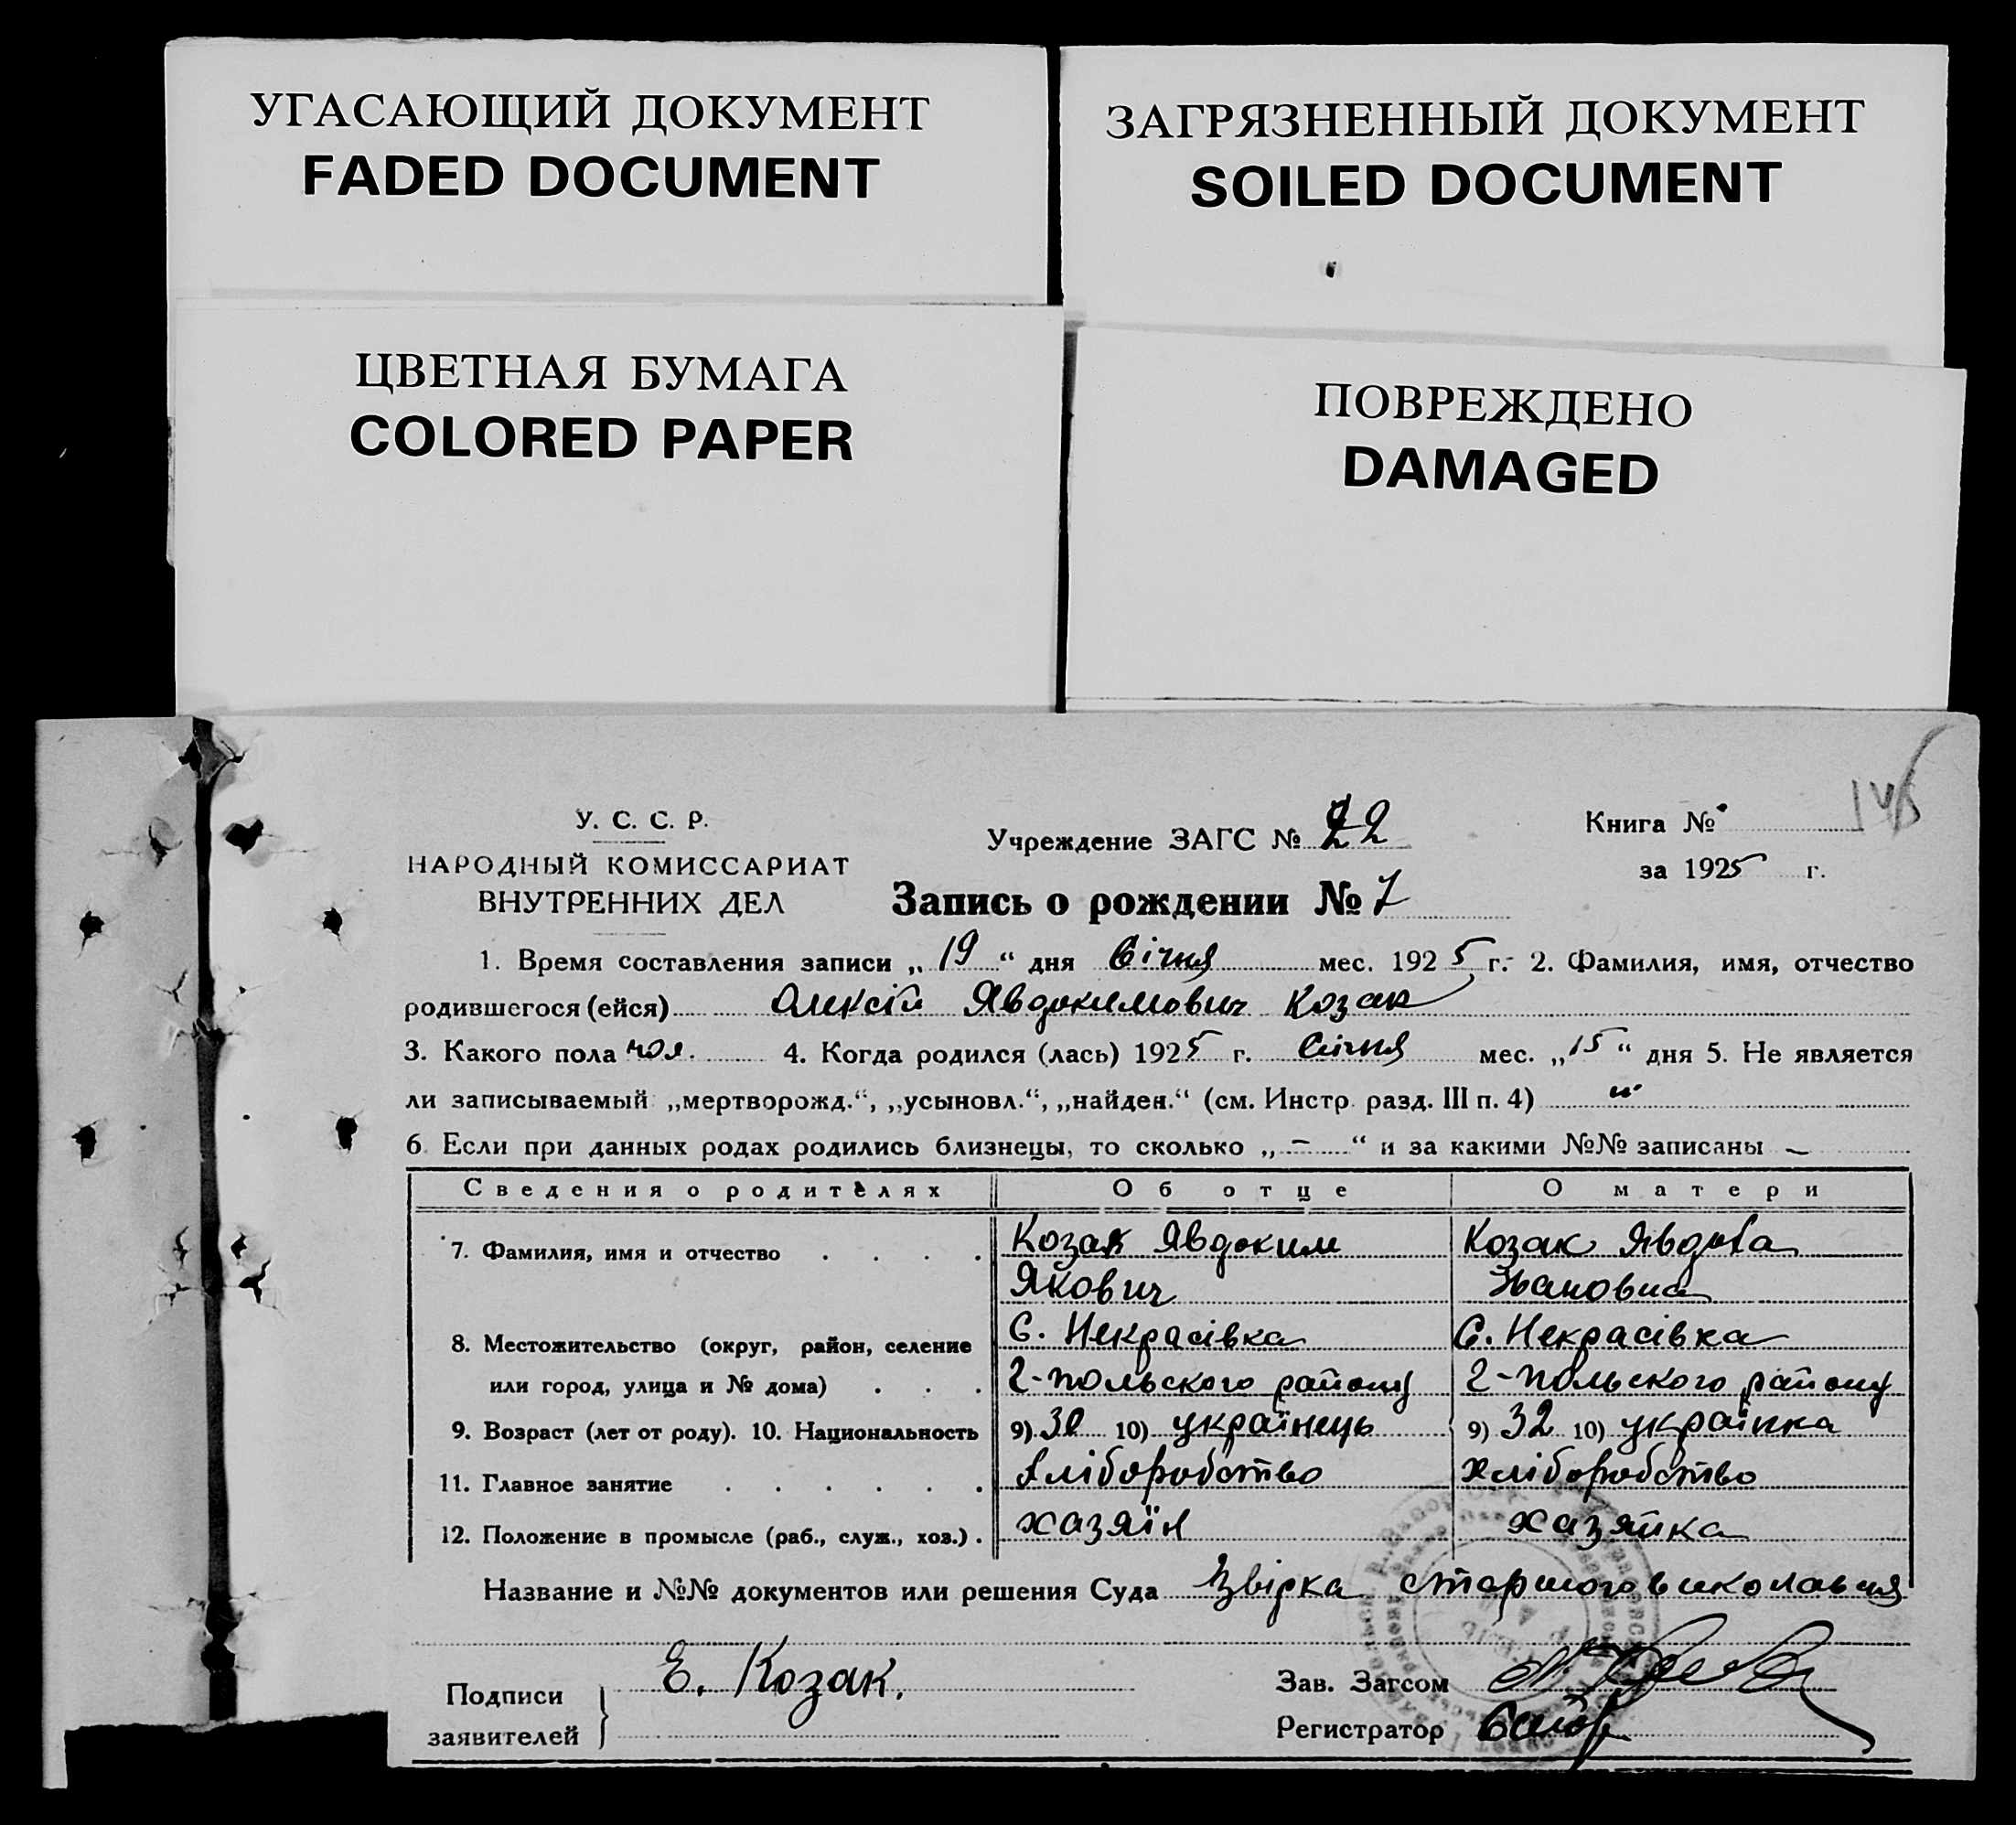 УГАСАЮЩИЙ ДОКУМЕНТ
FADED DOCUMENT
ЗАГРЯЗНЕННЫЙ ДОКУМЕНТ
SOILED DOCUMENT
ЦВЕТНАЯ БУМАГА
COLORED PAPER
ПОВРЕЖДЕНО
DAMAGED
У. С. С. Р.
НАРОДНЫЙ КОМИССАРИАТ
ВНУТРЕННИХ ДЕЛ
Учреждение ЗАГС № 22
Запись о рождении № 7
Книга №
за 1925 г.
1. Время составления записи „19“ дня Січня мес. 1925 г. 2. Фамилия, имя, отчество
родившегося (ейся) Олексій Явдокимович Козак
3. Какого пола чол. 4. Когда родился (лась) 1925 г. Січня мес. „15“ дня 5. Не является
ли записываемый „мертворожд.“, „усыновл.“, „найден.“ (см. Инстр. разд. III п. 4)
6. Если при данных родах родились близнецы, то сколько „—“ и за какими №№ записаны —
Сведения о родителях Об отце О матери
7. Фамилия, имя и отчество . . . . Козак Явдоким Козак Явдоха
Якович Івановна
8. Местожительство (округ, район, селение С. Некрасівка С. Некрасівка
или город, улица и № дома) . . . Г-польского району Г-польского району
9. Возраст (лет от роду). 10. Национальность 9) 30 10) українець 9) 32 10) українка
11. Главное занятие . . . . . . Хліборобство Хліборобство
12. Положение в промысле (раб., служ., хоз.) . хазяїн хазяйка
Название и №№ документов или решения Суда Звірка
Подписи
заявителей
Е. Козак.
Зав. Загсом
Регистратор